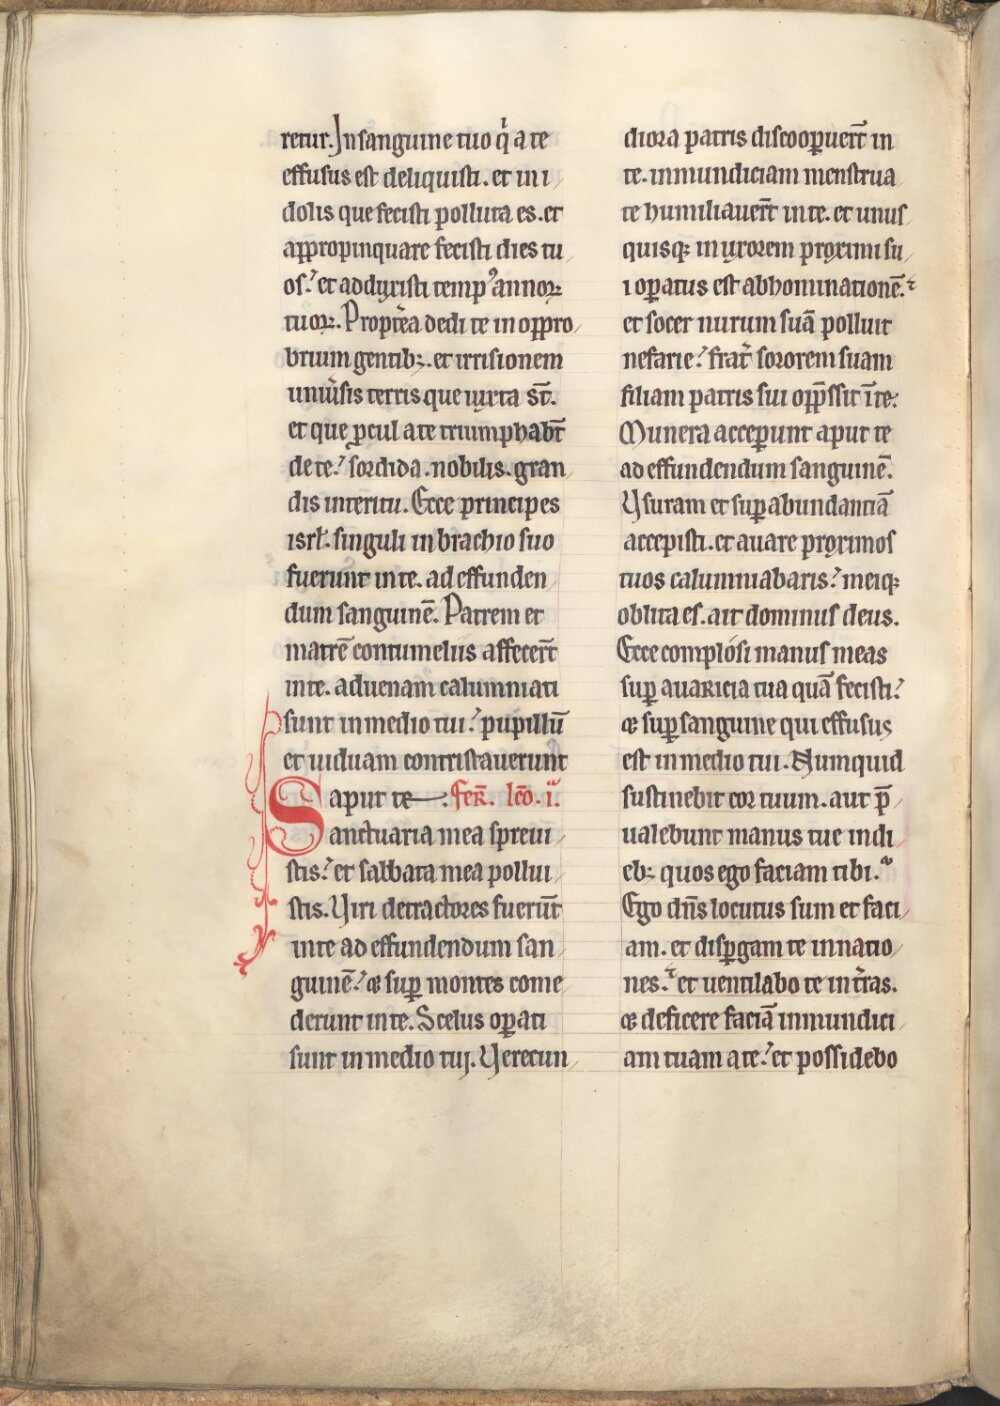 retur. In sanguine tuo q̇ a te
effusus est deliquisti. et in i
dolis que fecisti polluta es. et
aꝓpropinquare fecisti dies tu
os. et adduxisti temp⁹ annoꝝ
tuoꝝ. Propt̄ea dedi te in oppro
brium gentibꝫ. et irrisionem
uniu̾sis terris que iuxta st̄.
et que ꝓcul a te triumphabt̄
de te. sordida. nobilis. gran
dis int̾eritu. Ecce principes
isrł. singuli in brachio suo
fuerunt in te. ad effunden
dum sanguinē. Patrem et
matrē contumeliis affecert̄
in te. aduenam calumniati
sunt in medio tui. pupillū
et uiduam contristauerunt
aput te feɍ. lc̄o. i.
Sanctuaria mea spreui
stis. et sabbata mea pollui
stis. Uiri detractores fuerūt
in te ad effundendum san
guinē. et suꝑ montes come
derunt in te. Scelus oꝑati
sunt in medio tui. Uerecun
diora patris discooꝑuert̄ in
te. inmundiciam menstrua
te humiliauert̄ in te. et unus
quisqꝫ in uxorem proximi su
i oꝑatus est abhominationē.
et socer nurum suā polluit
nefarie. frat̾ sororem suam
filiam patris sui opp̄ssit ī te.
Munera acceꝑunt aput te
ad effundendum sanguinē.
Usuram et suꝑabundantiā
accepisti. et auare proximos
tuos calumniabaris. meiqꝫ
oblita es. ait dominus deus.
Ecce complosi manus meas
suꝑ auaricia tua quā fecisti.
et suꝑ sanguine qui effusus
est in medio tui. Numquid
sustinebit cor tuum. aut p̄
ualebunt manus tue in di
ebꝫ quos ego faciam tibi.
Ego dn̄s locutus sum et faci
am. et disꝑgam te in natio
nes. et uentilabo te in t̾ras.
et deficere faciā inmundici
am tuam a te. et possidebo